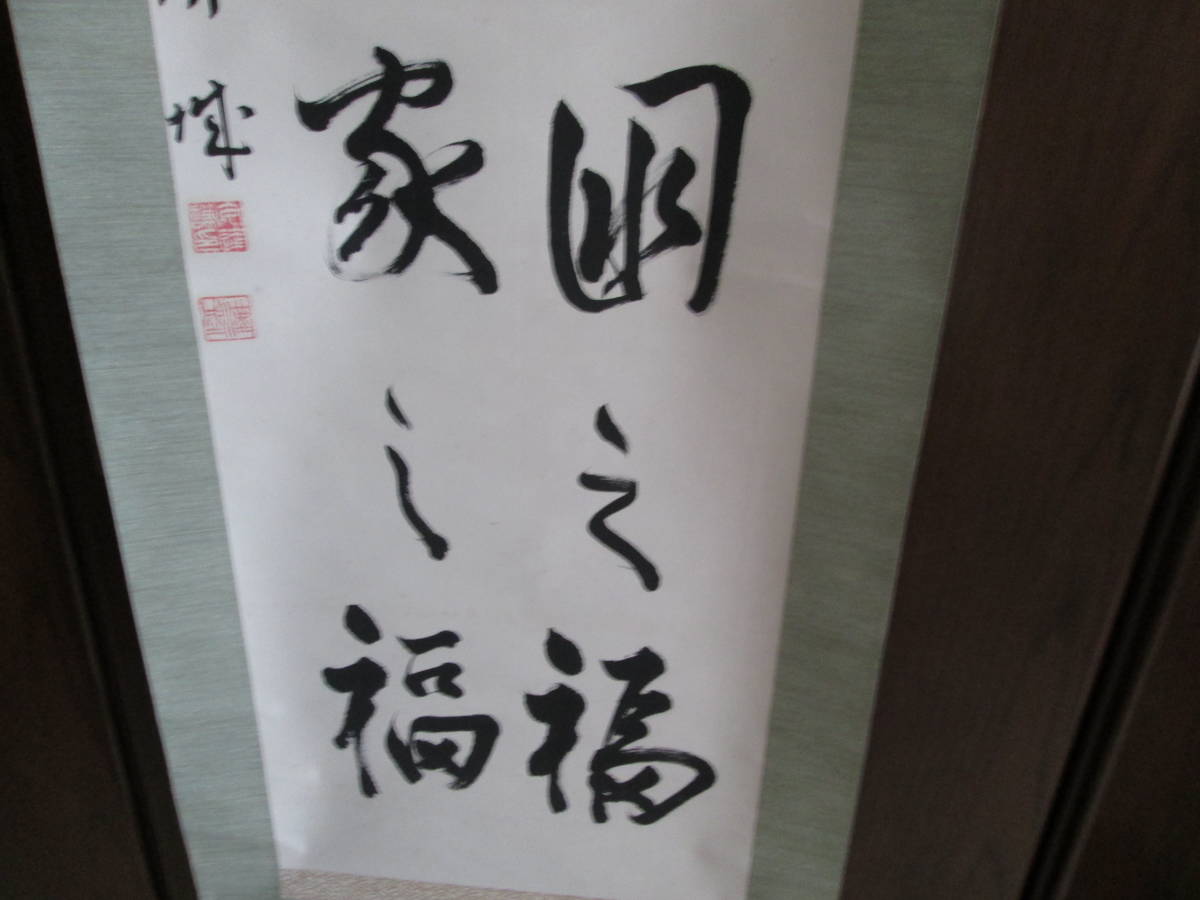 國之福
家之福
城